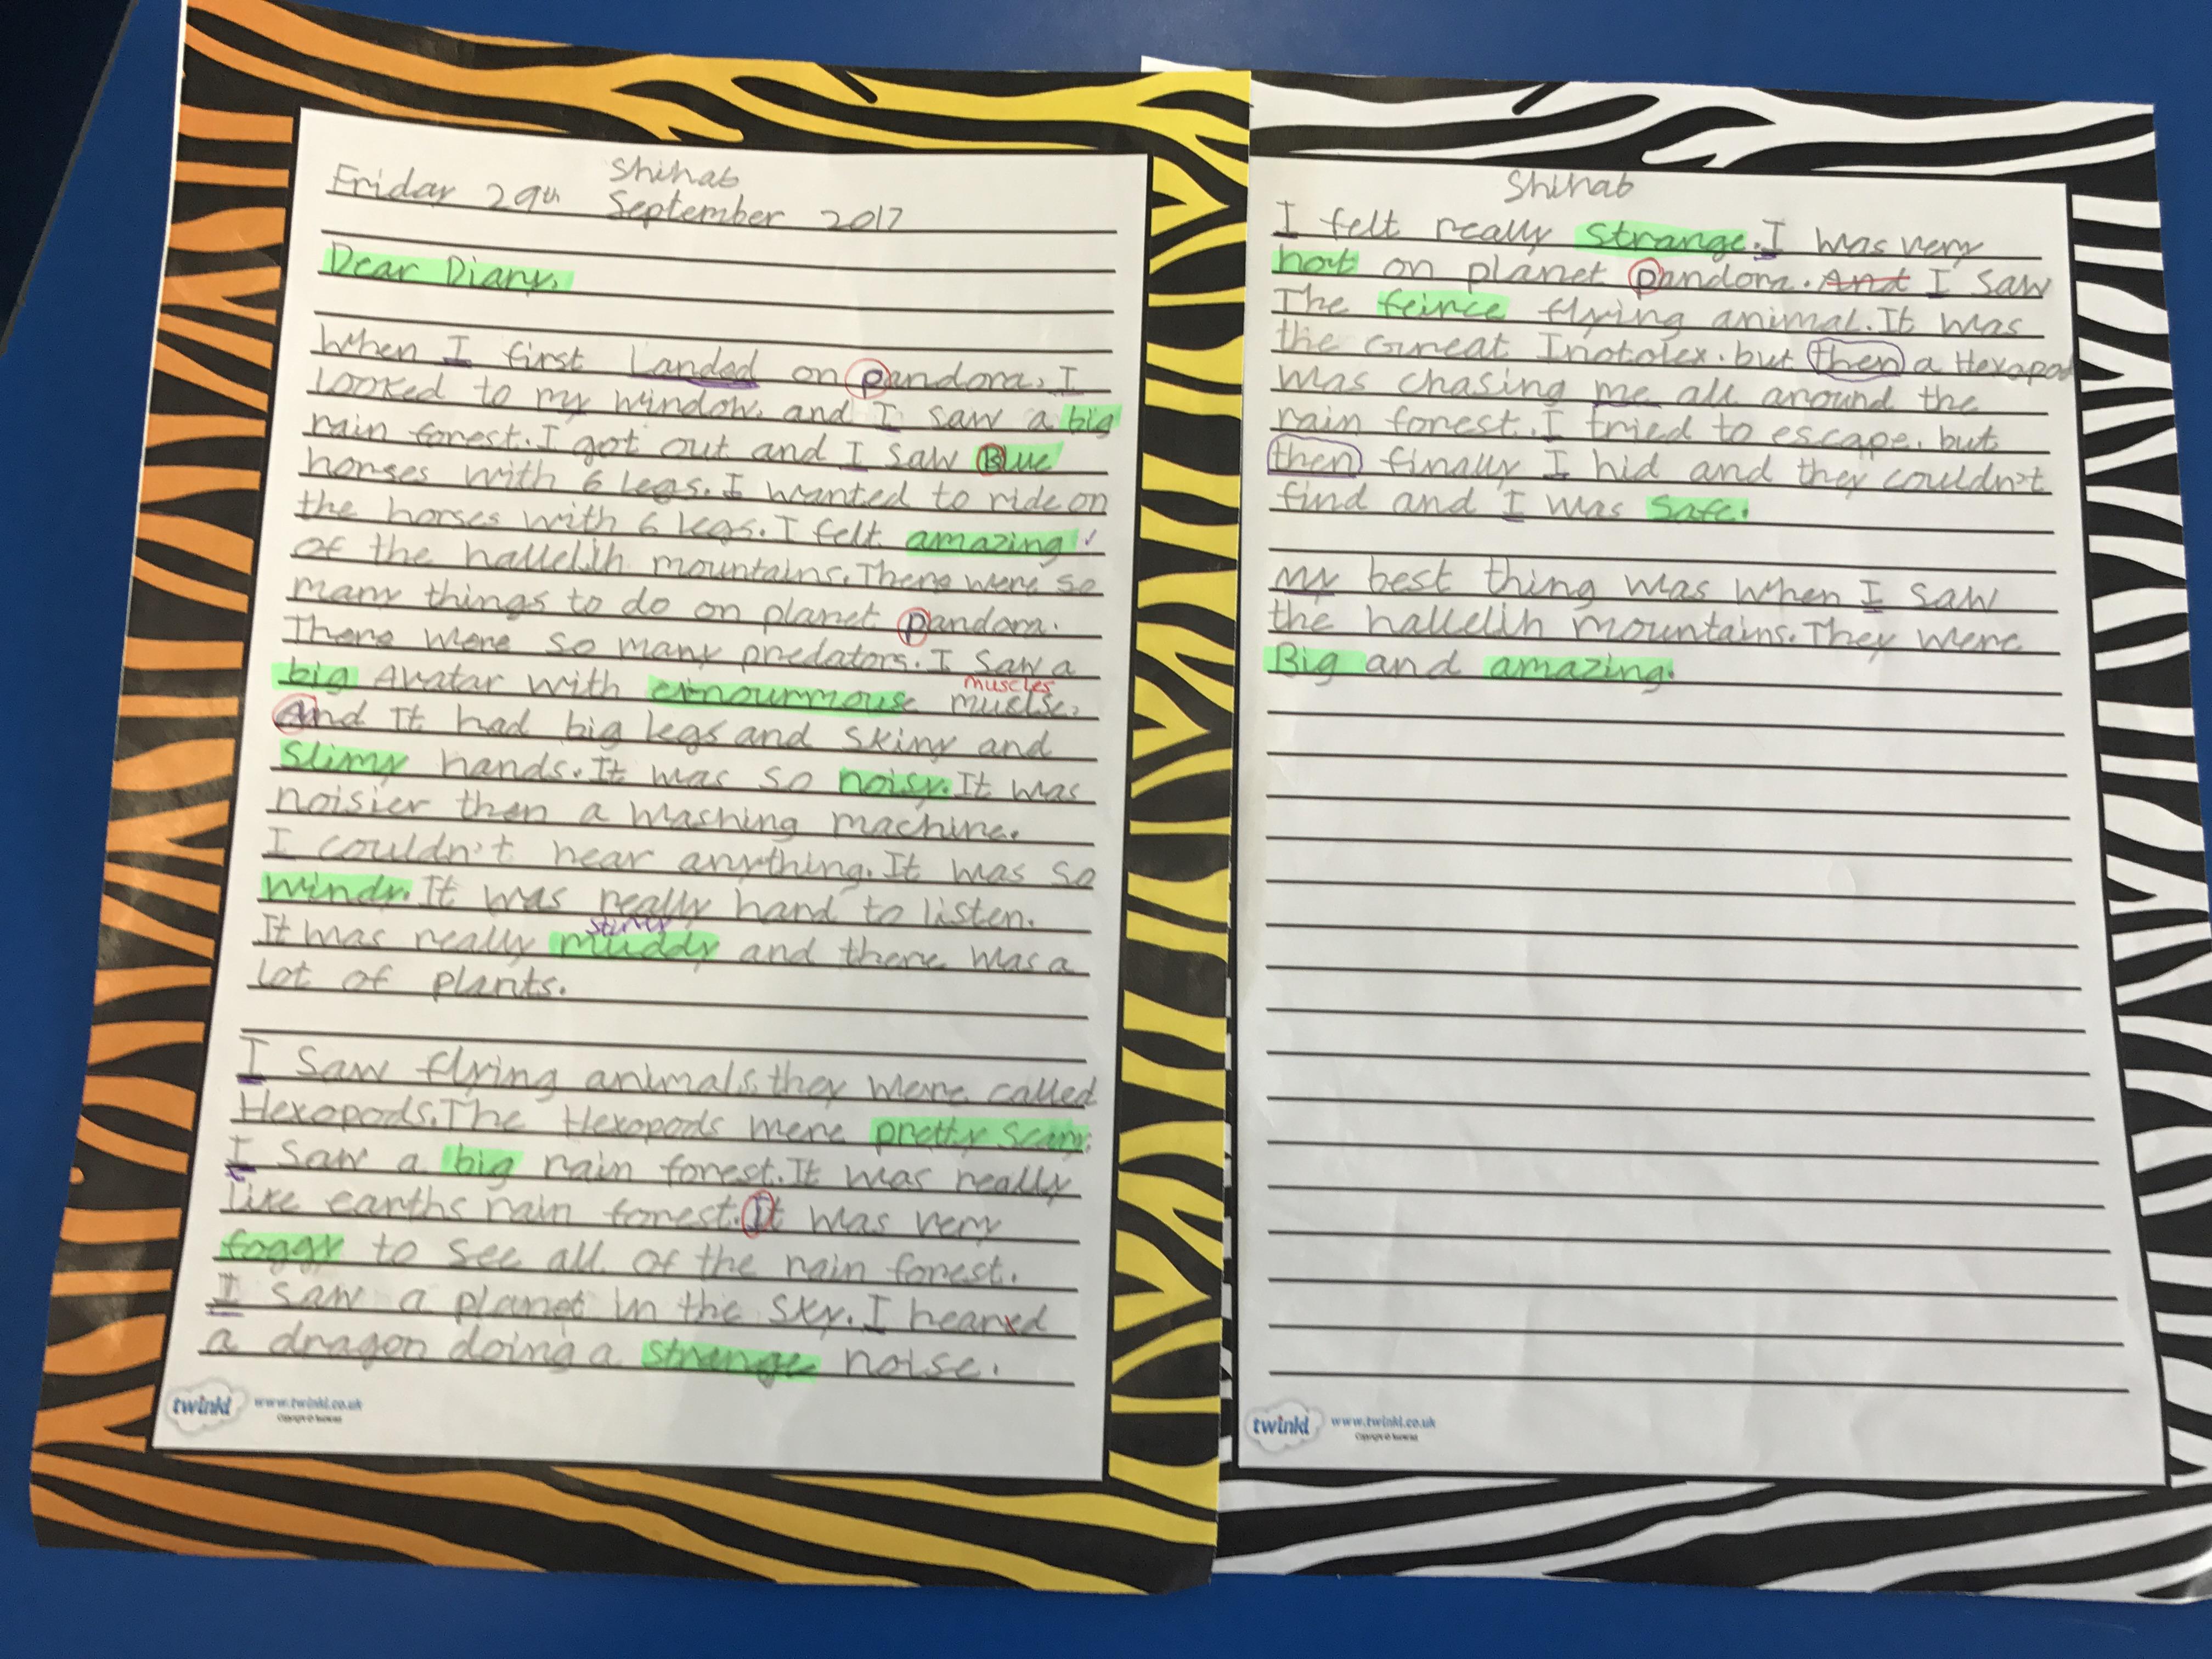 Shihab
Friday 29th September 2017
Dear Diary,
When I first Landed on pandora, I
looked to my window. and I saw a big
rain forest. I got out and I saw Blue
horses with 6 legs. I wanted to ride on
the horses with 6 legs. I felt amazing!
of the hallelih mountains. There were so
many things to do on planet pandora.
There were so many predators. I saw a
muscles
big Avatar with enourmouse muclse.
And It had big legs and skiny and
slimy hands. It was so noisy. It was
noisier then a washing machine.
I couldn't hear anything. It was so
windy. It was really hard to listen.
It was really muddy and there was a
lot of plants.
I saw flying animals. they were called
Hexopods. The Hexopods were pretty scary.
I saw a big rain forest. It was really
like earths rain forest. It was very
foggy to see all of the rain forest.
I saw a planet in the sky. I heared
a dragon doing a strange noise.
twinkl www.twinkl.co.uk
Shihab
I felt really strange. I was very
hot on planet pandora. And I saw
The feirce flying animal. It was
the Great Inotolex. but then a Hexapod
was chasing me all around the
rain forest. I tried to escape. but
then finally I hid and they couldn't
find and I was safe.
my best thing was when I saw
the hallelih mountains. They were
Big and amazing.
twinkl www.twinkl.co.uk